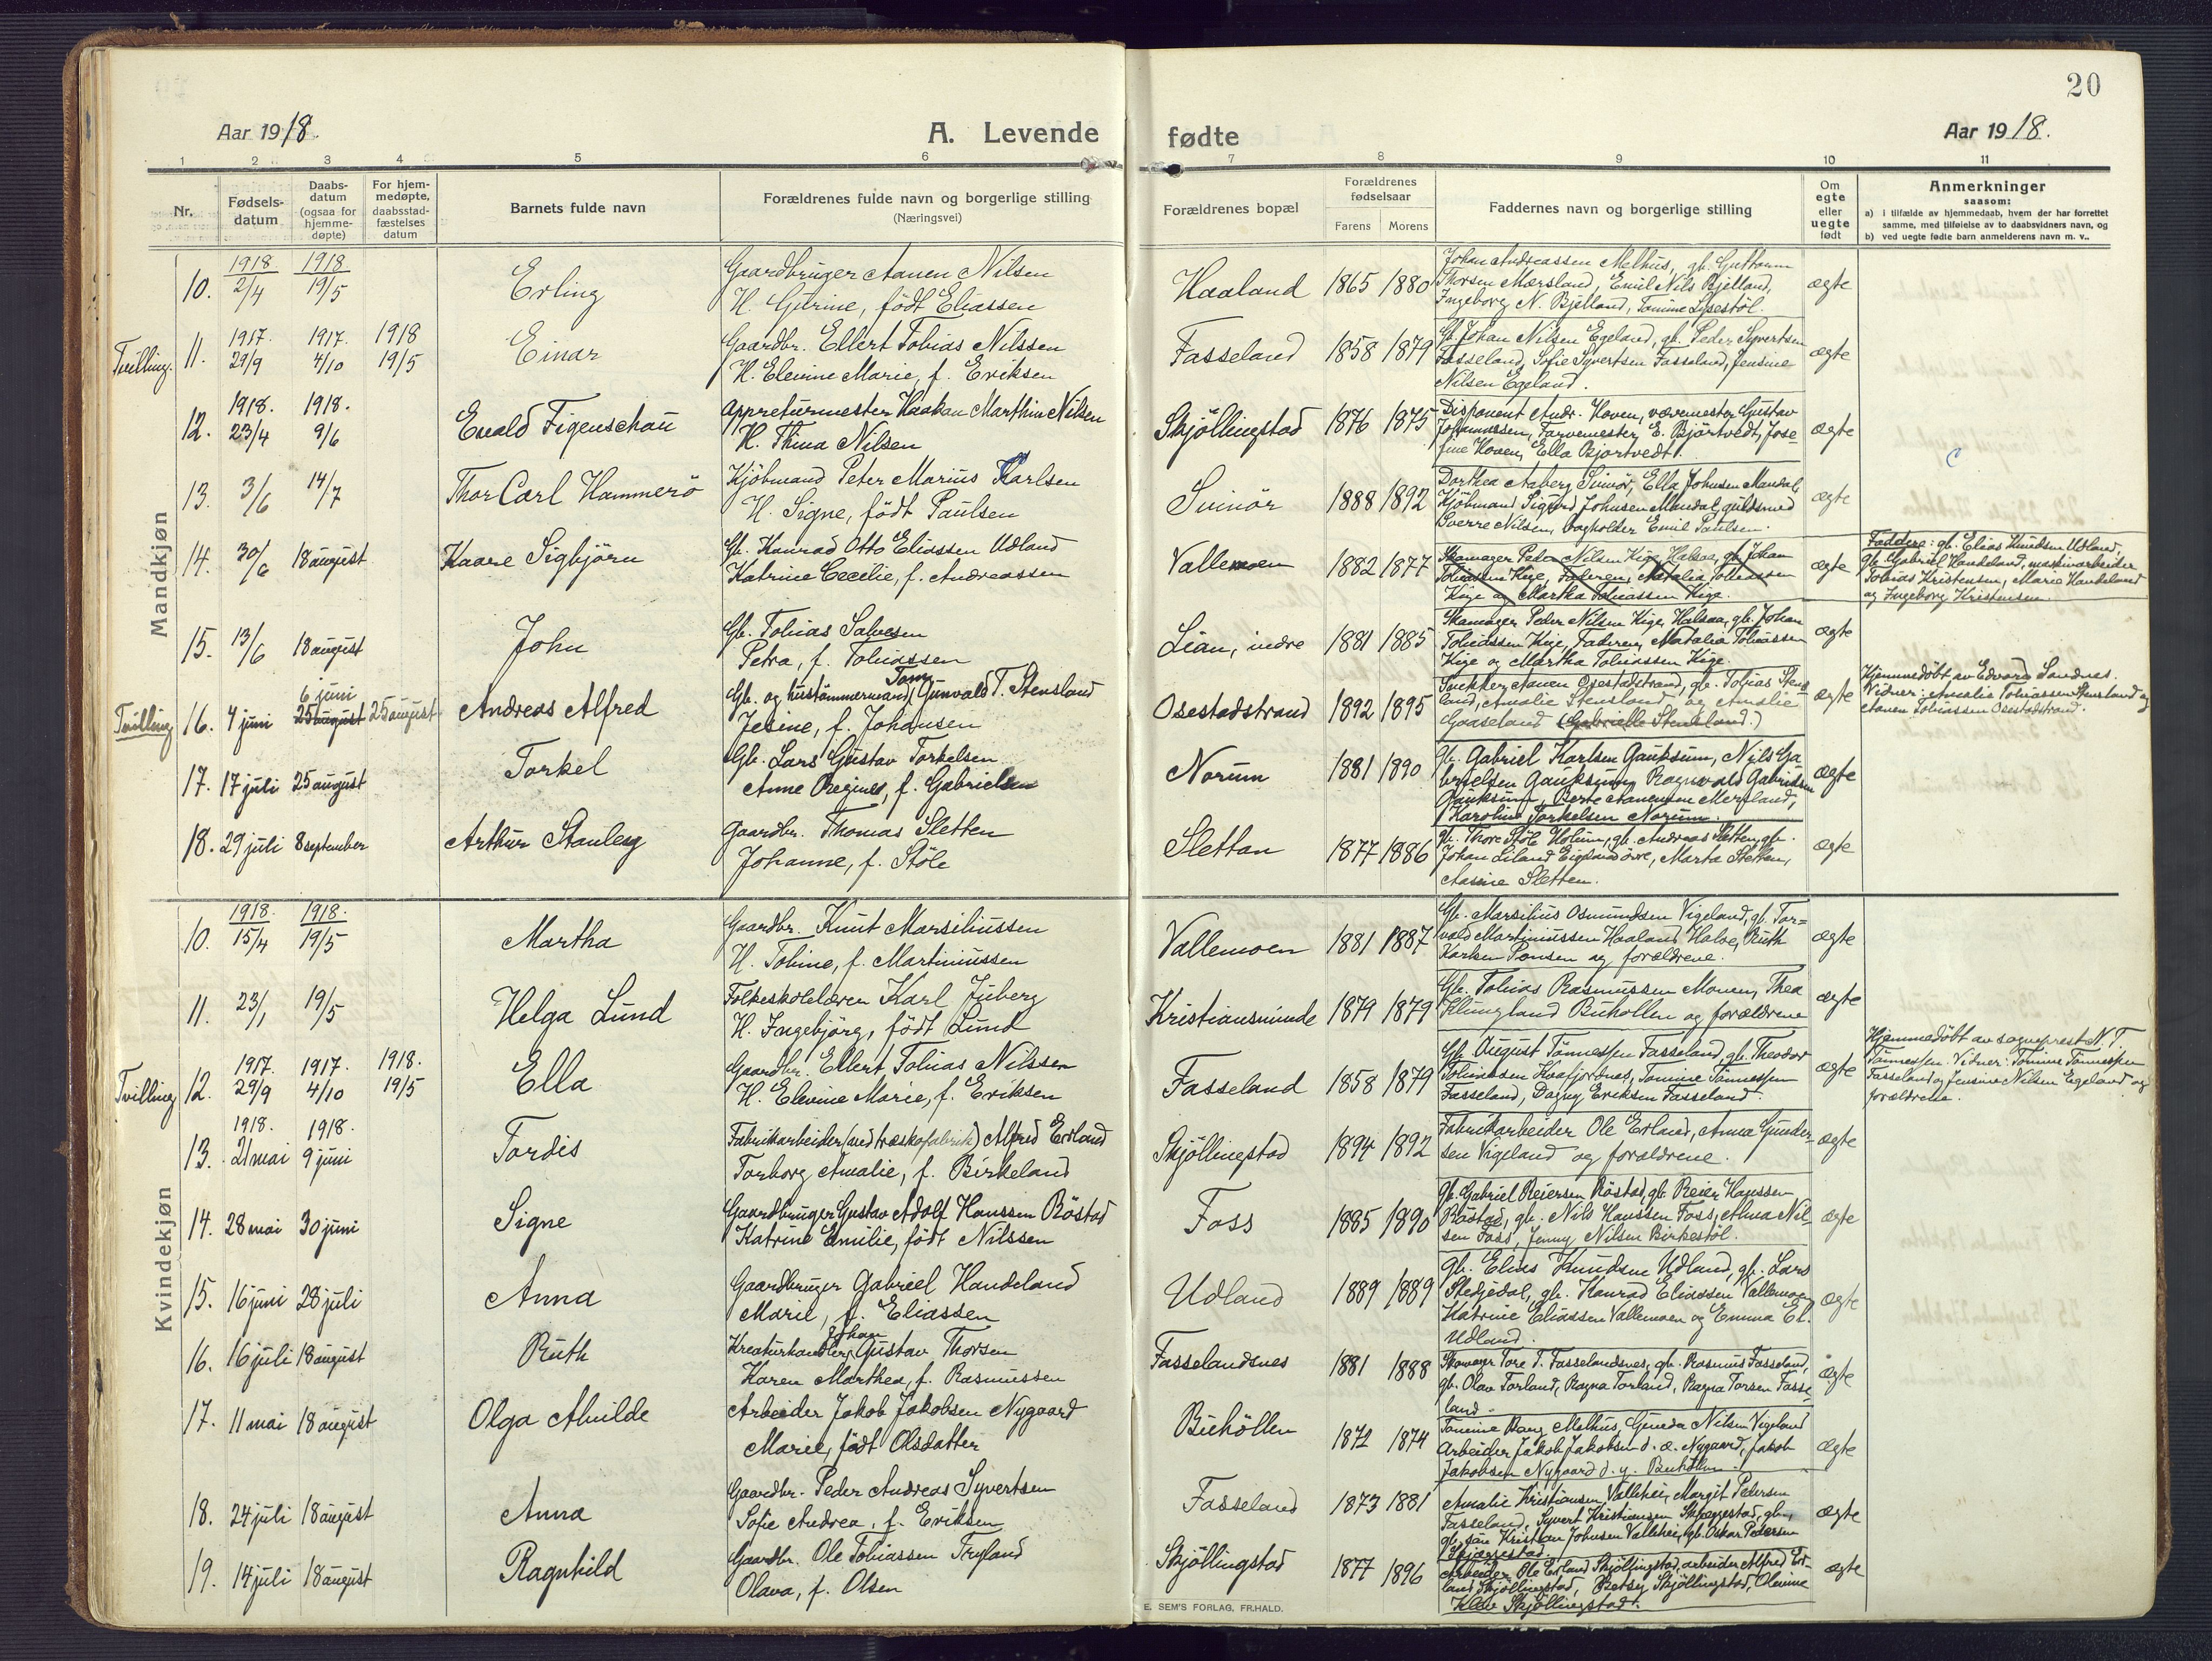 20
Aar 1918.
A. Levende
fødte
Aar 1918.
1 2 3 4 5 6 7 8 9 10 11
Nr.
Fødsels-
datum
Daabs-
datum
(ogsaa for
hjemme-
døpte)
For hjem-
medøpte,
daabsstad-
fæstelses
datum
Barnets fulde navn
Forældrenes fulde navn og borgerlige stilling
(Næringsvei)
Forældrenes bopæl
Forældrenes
fødselsaar
Farens Morens
Faddernes navn og borgerlige stilling
Om
egte
eller
uegte
født
Anmerkninger
saasom:
a) i tilfælde av hjemmedaab, hvem der har forrettet
samme, med tilføielse av to daabsvidners navn, og
b) ved uegte fødte barn anmelderens navn m. v..
Mandkjøn
10. 1918 2/4 1918 19/5 Erling
Gaardbruger Aanen Nilsen
H. Gurine, født Eliassen
Haaland 1865 1880
Johan Andreassen Melhus, gb. Guttorm
Thorsen Mærsland, Emil Nils Bjelland,
Ingeborg N. Bjelland, Tomine Lysestøl.
ægte
Tvilling. 11. 1917. 29/9 1917. 4/10 1918 19/5 Einar
Gaardbr. Ellert Tobias Nilssen
H. Elevine Marie, f. Eriksen
Fasseland 1858 1879
Gb. Johan Nilsen Egeland, gb. Peder Syvertsen
Fasseland, Sofie Syvertsen Fasseland, Jensine
Nilsen Egeland.
ægte
12. 1918. 23/4 1918. 9/6 Evald Figenschau
Appreturmester Haakon Marthin Nilsen
H. Thina Nilsen
Skjöllingstad 1876 1875
Disponent Andr. Hoven, vævemester Gustav
Johannessen, Farvemester E. Björtvedt, Jose-
fine Hoven, Ella Bjortvedt.
ægte
13. 3/6 14/7 Thor Carl Hammerö
Kjöbmand Peter Marius Karlsen
H. Signe, født Paulsen
Svinör 1888 1892
Dorthea Aaberg Svinör, Ella Johnsen Mandal,
Kjöbmand Sigurd Johnsen Mandal, guldsmed
Sverre Nilsen, bogholder Emil Paulsen.
ægte
14. 30/6 18 august Kaare Sigbjörn
Gb. Konrad Otto Eliassen Udland
Katrine Cecilie, f. Andreassen
Vallemoen 1882 1877
Skomager Peder Nilsen Kige, Halsaa, gb. Johan
Tobiassen Kige, Faderen, Natalia Tobiassen
Kige og Martha Tobiassen Kige.
ægte
Faddere: gb. Elias Knudsen Udland,
gb. Gabriel Handeland, maskinarbeider
Tobias Kristensen, Marie Handeland
og Ingeborg Kristensen.
15. 13/6 18 august John
Gb. Tobias Salvesen
Petra, f. Tobiassen
Lian, indre 1881 1885
Skomager Peder Nilsen Kige, Halsaa, gb. Johan
Tobiassen Kige, Faderen, Natalia Tobiassen
Kige og Martha Tobiassen Kige.
ægte
Tvilling 16. 4 juni 6 juni 25 august 25 august Andreas Alfred
Gb. og hustömmermand Tom Gunvald T. Stensland
Jesine, f. Johansen
Osestadstrand 1892 1895
Snekker Aanen Osestadstrand, gb. Tobias Stens
land, Amalie Stensland og Amalie
Gaaseland (Gabrielle Stensland.)
ægte
Hjemmedöbt av Edvard Sandnes.
Vidner: Amalie Tobiassen Stensland og
Aanen Tobiassen Osestadstrand.
17. 17 juli 25 august Torkel
Gb. Lars Gustav Torkelsen
Anne Regine, f. Gabrielsen
Norum 1881 1890
gb. Gabriel Karlsen Gauksum, Nils Ga
brielsen Gauksum, Ragnvald Gabrielsen
Gauksum, Berte Aanensen Mersland,
Karoline Torkelsen Norum.
ægte
18. 29 juli 8 september Arthur Stanley
Gaardbr. Thomas Sletten
Johanne, f. Støle
Slettan 1877 1886
gb. Thore Støle Holum, gb. Andreas Sletten, gb.
Johan Liland Eigeland övre, Marta Sletten,
Aasine Sletten.
ægte
Kvindekjøn
10. 1918. 15/4 1918. 19/5 Martha
Gaardbr. Knut Marsiliussen
H. Tobine, f. Martiniussen
Vallemoen 1881 1887
Gb. Marsilius Osmundsen Vigeland, gb. Tor=
vald Martiniussen Haaland Halse, Ruth
Karlsen Ponsen og forældrene.
ægte
11. 23/1 19/5 Helga Lund
Folkeskolelærer Karl Juberg
H. Ingebjörg, født Lund
Kristiansminde 1879 1879
Gb. Tobias Rasmussen Monen, Thea
Klungland Buhollen og forældrene
ægte
Tvilling 12. 1917. 29/9 1917. 4/10 1918. 19/5 Ella
Gaardbr. Ellert Tobias Nilssen
H. Elevine Marie, f. Eriksen
Fasseland 1858 1879
Gb. August Tönnessen Fasseland, gb. Theodor
Tobiassen Kaafjordnes, Tomine Tönnessen
Fasseland, Dagny Eriksen Fasseland.
ægte
Hjemmedöbt av sogneprest N. T.
Tönnessen. Vidner: Tomine Tönnessen
Fasseland og Jensine Nilsen Egeland og
forældrene.
13. 1918. 21 mai 1918. 9 juni Tordis
Fabrikarbeider (ved træskofabrik) Alfred Erland
Torborg Amalie, f. Birkeland
Skjöllingstad 1894 1892
Fabrikarbeider Ole Erland, Anna Gunder-
sen Vigeland og forældrene.
ægte
14. 28 mai 30 juni Signe
Gaardbruger Gustav Adolf Hanssen Röstad
Katrine Emilie, født Nilssen
Foss 1885 1890
gb. Gabriel Reiersen Röstad, gb. Reier Hanssen
Röstad, gb. Nils Hanssen Foss, Alma Nil-
sen Foss, Jenny Nilsen Birkestöl.
ægte
15. 16 juni 28 juli Anna
Gaardbruger Gabriel Handeland
Marie, f. Eliassen
Udland 1889 1889
gb. Elias Knudsen Udland, gb. Lars
Stedjedal, gb. Konrad Eliassen Vallemoen,
Katrine Eliassen Vallemoen og Emma El.
Udland.
ægte
16. 16 juli 18 august Ruth
Kreaturhandler Johan Gustav Thorsen
Karen Marthea, f. Rasmussen
Fasselandsnes 1881 1888
Skomager Tore T. Fasselandsnes, gb. Rasmus Fasseland,
gb. Olav Torland, Ragna Torland, Ragna Torsen Fasse
land.
ægte
17. 11 mai 18 august Olga Alvilde
Arbeider Jakob Jakobsen Nygaard
Marie, født Olsdatter
Buhöllen 1872 1874
Tomine Berg Melhus, Gunda Nilsen Vigeland
Arbeider Jakob Jakobsen d. æ. Nygaard, Jakob
Jakobsen Nygaard d. y. Buhöllen.
ægte
18. 24 juli 18 august Anna
Gaardbr. Peder Andreas Syvertsen
Sofie Andrea, f. Eriksen
Fasseland 1873 1881
Amalie Kristiansen Vallhei, Margit Pedersen
Fasseland, Syvert Kristiansen Skjæggestad, gb.,
gb. Kristian Johnsen Vallhei, gb. Oskar Pedersen
Skjæggestad.
ægte
19. 14 juli 18 august Ragnhild
Gaardbr. Ole Tobiassen Tryland
Olava, f. Olsen
Skjöllingstad 1877 1896
Arbeider Ole Erland Skjöllingstad, arbeider Alfred Er-
land Skjöllingstad, Betsy Skjöllingstad, Olevine
Skjöllingstad.
ægte
E. SEM'S FORLAG, FR.HALD.